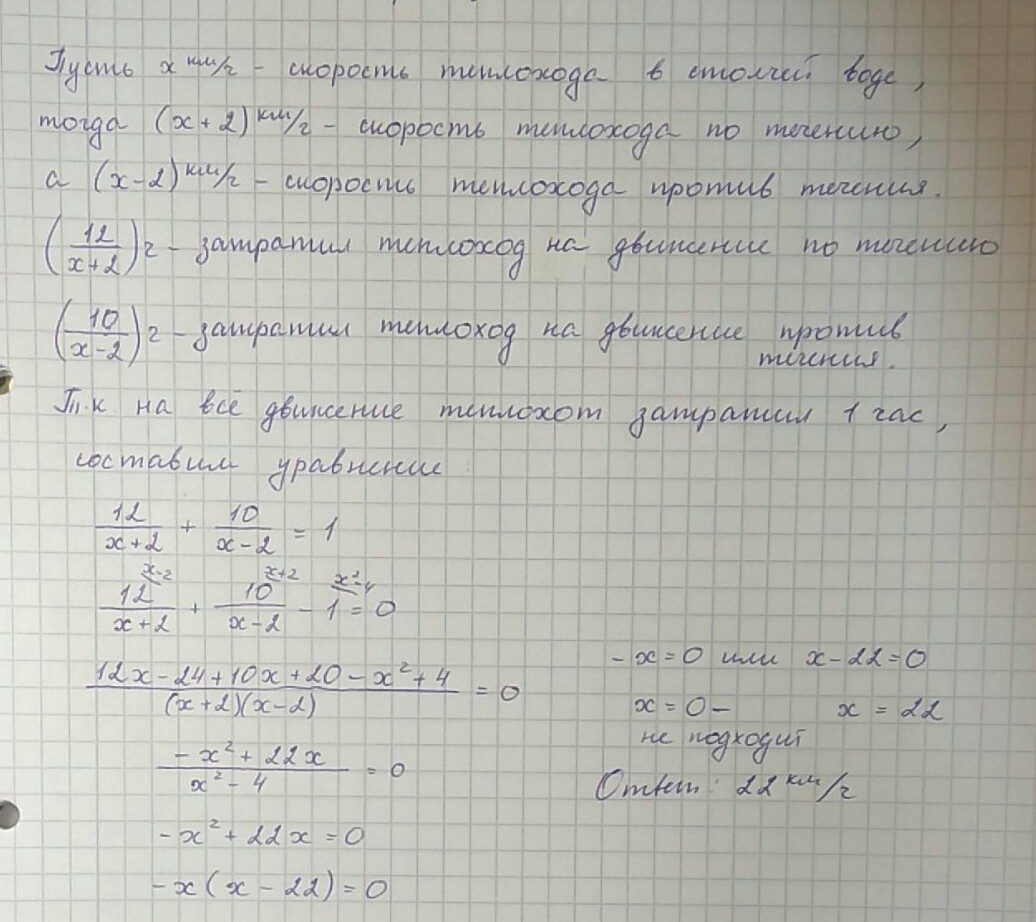 Пусть x км/ч - скорость теплохода в столчей воде,
тогда (x+2) км/ч - скорость теплохода по течению,
а (x-2) км/ч - скорость теплохода против течения.
(12/(x+2)) ч - затратил теплоход на движение по течению
(10/(x-2)) ч - затратил теплоход на движение против
течения.
Т.к на всё движение теплохот затратил 1 час,
составим уравнение:
12/(x+2) + 10/(x-2) = 1
12/(x+2) ^(x-2) + 10/(x-2) ^(x+2) - 1 ^(x²-4) = 0
(12x-24+10x+20-x²+4)/((x+2)(x-2)) = 0
(-x²+22x)/(x²-4) = 0
-x²+22x=0
-x(x-22)=0
-x=0 или x-22=0
x=0 - x=22
не подходит
Ответ: 22 км/ч